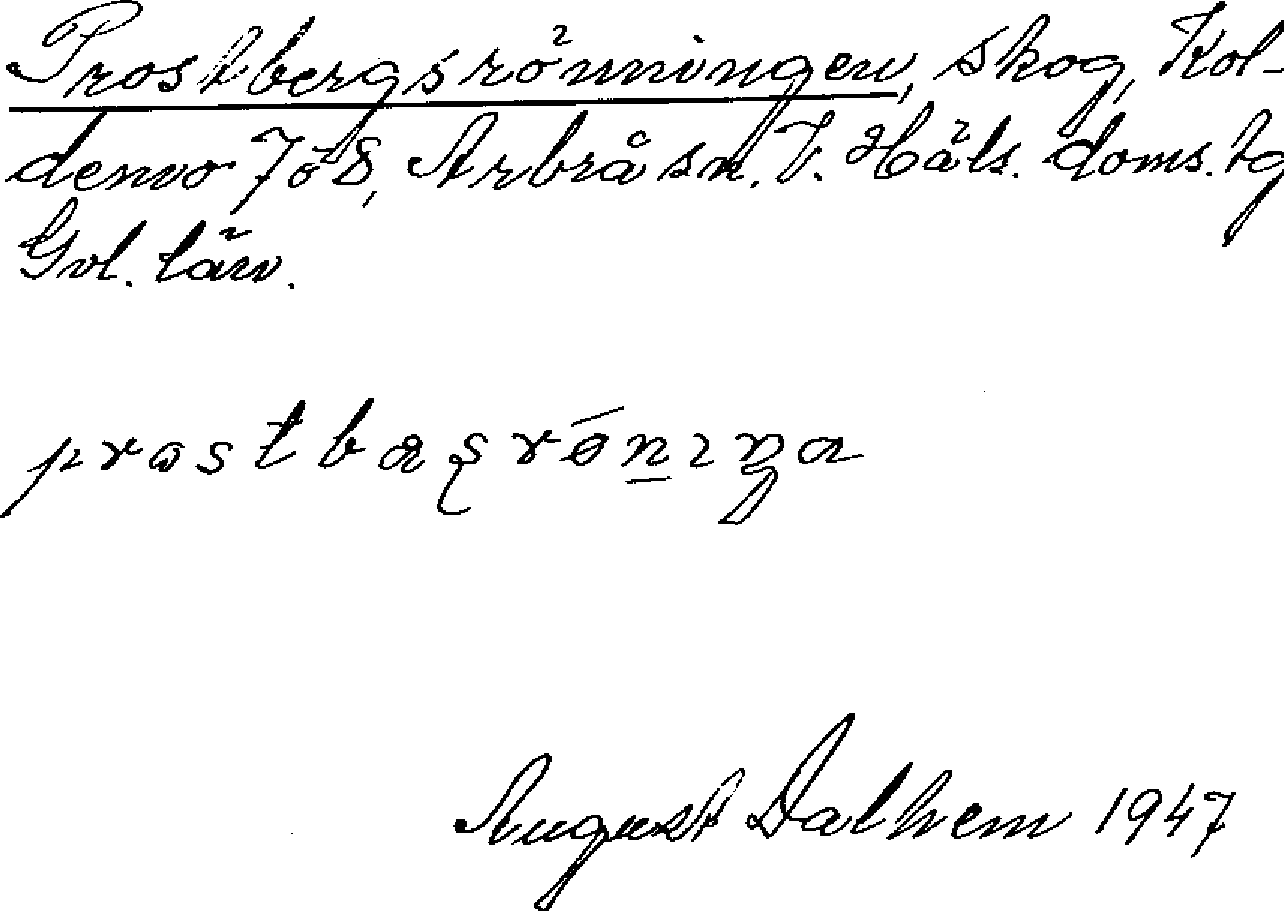 Prostbergsrönningen, skog, Kol-
demo 7 o 8, Arbrå sn. V. Häls. doms. tg
Gvl. län.
August Dalhem 1947